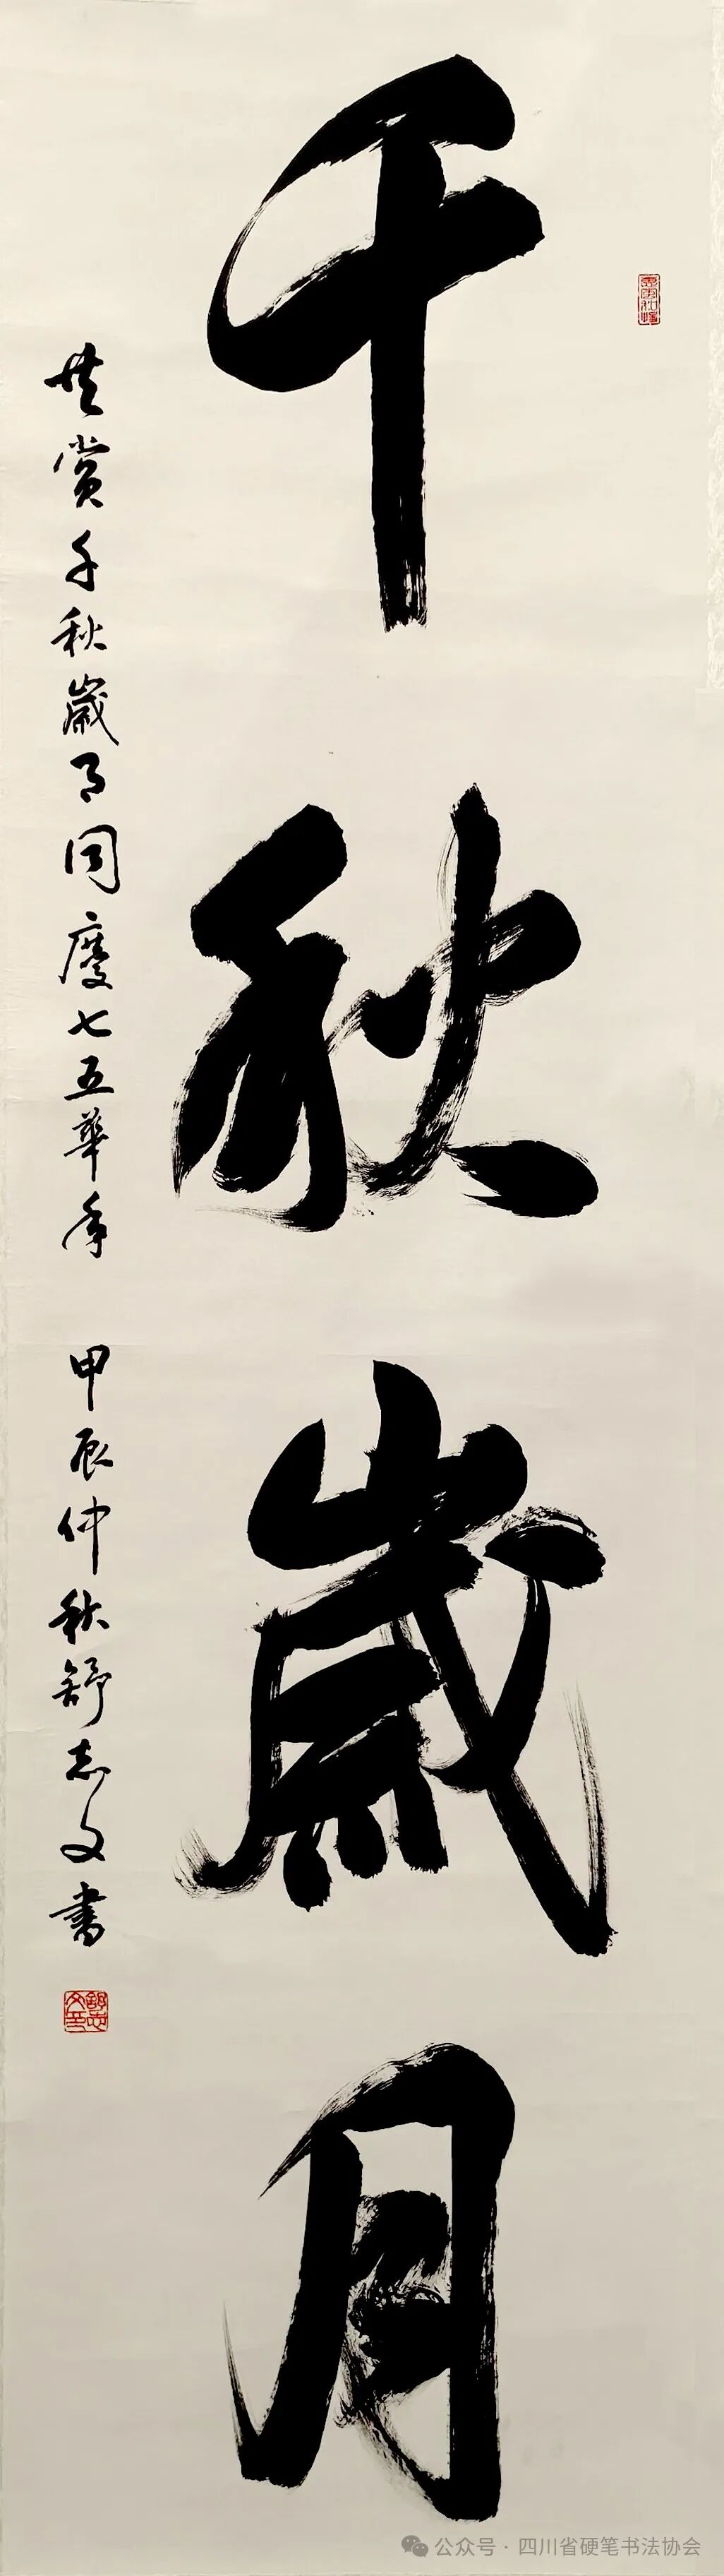 千秋歲月
共赏千秋歲月同慶七五華年
甲辰仲秋舒志文書
舒志文印
公众号·四川省硬笔书法协会